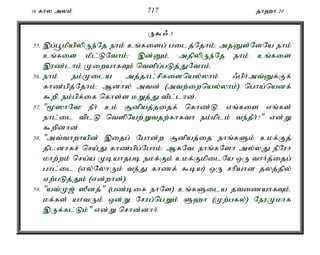 16 கால அலம் 717 தாஹா 20
ருகூஃ 3
55. இப்பூமியிலிருந்தே நாம் உங்களைப் படைத்தோம்; அதனுள்ளேயே நாம்
உங்களை மீட்டுவோம்; இன்னும், அதிலிருந்தே நாம் உங்களை
இரண்டாம் முறையாகவும் வெளிப்படுத்துவோம்.
56. நாம் நம்முடைய அத்தாட்சிகளையெல்லாம் ஃபிர்அவ்னுக்குக்
காண்பித்தோம்; ஆனால் அவன் (அவற்றையெல்லாம்) பொய்யெனக்
கூறி, நம்பிக்கை கொள்ள மறுத்து விட்டான்.
57. "மூஸாவே! நீர் உம் சூனியத்தைக் கொண்டு, எங்களை எங்கள்
நாட்டை விட்டு வெளியேற்றுவதற்காகவா நம்மிடம் வந்தீர்?" என்று
கூறினான்.
58. "அவ்வாறாயின் இதைப் போன்ற சூனியத்தை நாங்களும் உமக்குத்
திடனாகச் செய்து காண்பிப்போம்; ஆகவே, நாங்களோ அல்லது நீரோ
மாற்றம் செய்ய முடியாதபடி நமக்கும் உமக்குமிடையே ஒரு வார்த்தைப்
பாட்டை (எல்லோரும் வந்து காணக் கூடிய) ஒரு சரியான தலத்தில்
ஏற்படுத்தும் (என்றான்).
59. "யவ்முஜ் ஸீனத்" (பண்டிகை நாளே) உங்களுடைய தவணையாகவும்,
மக்கள் யாவரும் ஒன்று சேரப்பெறும் ளுஹா (முற்பகல்) நேரமுமாக
இருக்கட்டும்" என்று சொன்னார்.